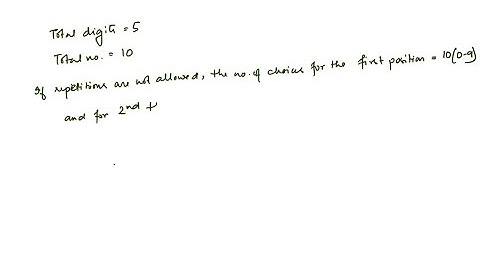 Total digits = 5
Total no. = 10
If repetitions are not allowed, the no. of choices for the first position = 10(0-9)
and for 2nd